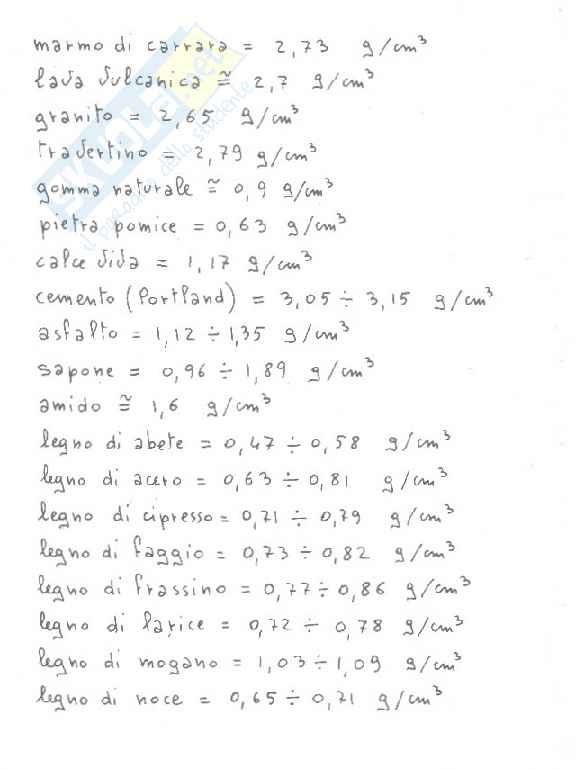 marmo di carrara = 2,73 g/cm³
lava vulcanica ≅ 2,7 g/cm³
granito = 2,65 g/cm³
travertino = 2,79 g/cm³
gomma naturale ≅ 0,9 g/cm³
pietra pomice = 0,63 g/cm³
calce viva = 1,17 g/cm³
cemento (Portland) = 3,05 ÷ 3,15 g/cm³
asfalto = 1,12 ÷ 1,35 g/cm³
sapone = 0,96 ÷ 1,89 g/cm³
amido ≅ 1,6 g/cm³
legno di abete = 0,47 ÷ 0,58 g/cm³
legno di acero = 0,63 ÷ 0,81 g/cm³
legno di cipresso = 0,71 ÷ 0,79 g/cm³
legno di faggio = 0,73 ÷ 0,82 g/cm³
legno di frassino = 0,77 ÷ 0,86 g/cm³
legno di larice = 0,72 ÷ 0,78 g/cm³
legno di mogano = 1,03 ÷ 1,09 g/cm³
legno di noce = 0,65 ÷ 0,71 g/cm³
SKUOLA.net
il paradiso dello studente